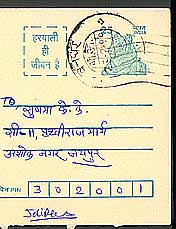 हरयाली
ही
जीवन है
भारत
INDIA
TO,
सुषमा के. के.
सी-11, पृथ्वीराज मार्ग
अशोक नगर, जयपुर
पिन PIN 302001